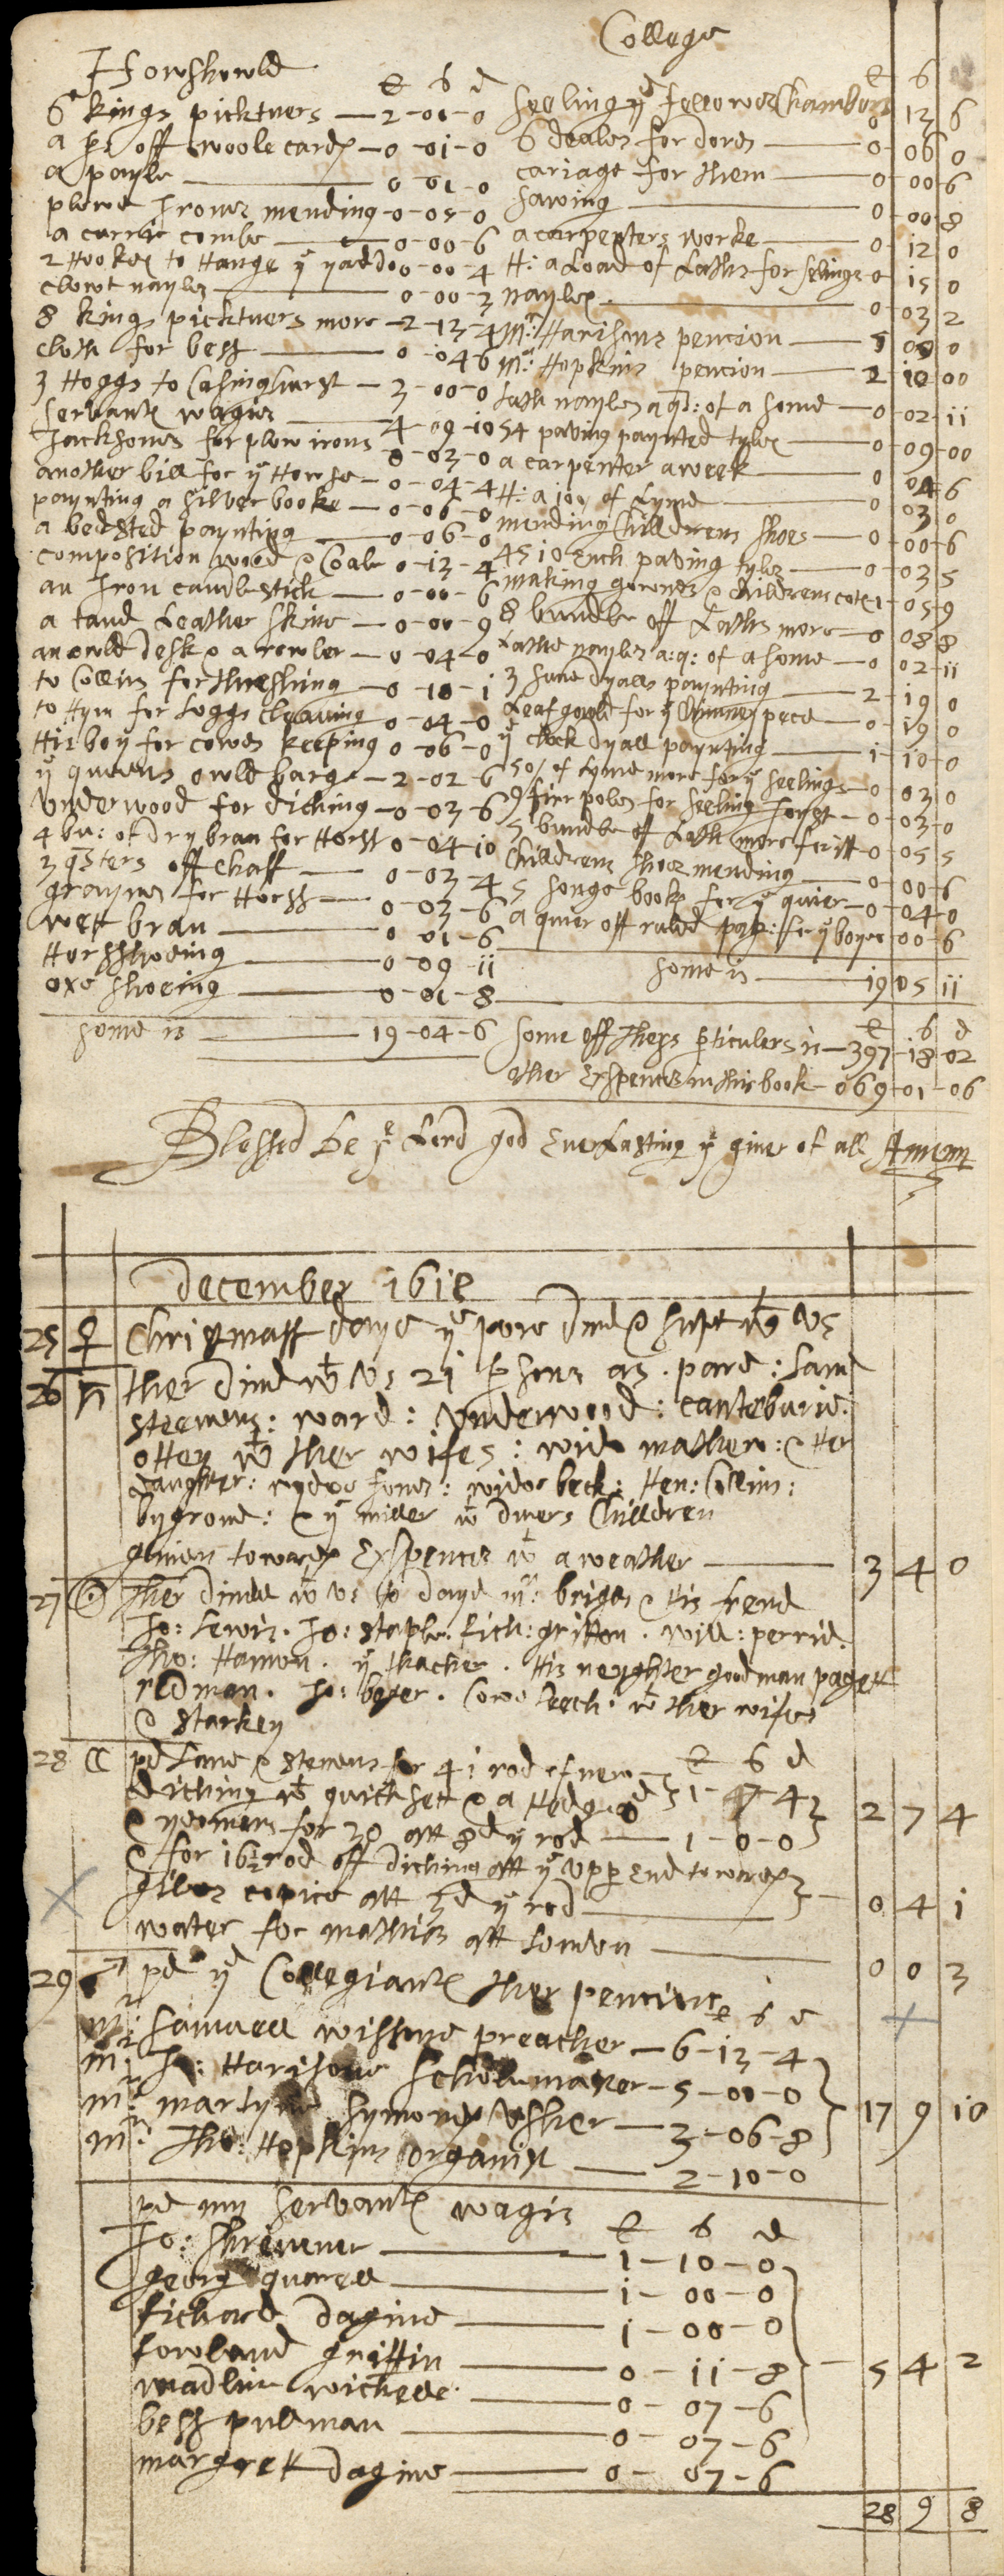 Howshowld
£ s d
6 kings picktuers — 2-01-0
a pr off woole cards — 0-01-0
a payle — 0 01-0
plowe Irones mending — 0-05-0
a currie combe — 0-00-6
2 Hookes to Hange yᵉ — 0-00-4
clowt nayles — 0-00-3
8 kings picktuers more — 2-13-4
cloth for bess — 0 04 6
3 Hoggs to — 3-00-0
servants wagies — 4-09-10
Jacksones for plow irons 0-03-0
another bill for yᵉ Howse — 0-04-4
paynting a silver booke — 0-06-0
a bedsted paynting — 0-06-0
composition wood & Coale 0-13-4
an Iron candlestick — 0-00-6
a tand Leather skine — 0-00-9
an owld Desk & a rowler — 0-04-0
to Collins for threshing — 0-10-1
to Hym for Loggs cleaving 0-04-0
His boy for cowes keeping 0-06-0
yᵉ queens owld barge — 2-02-6
Underwood for diching — 0-03-6
4 bu: of Dry bran for Horss 0-04-10
3 qrsters off Chaff — 0-03-4
graynes for Horss — 0-03-6
wett bran — 0 01-6
Horsshoeing — 0-09-11
oxe shoeing — 0-01-8
some is — 19-04-6
College
£ s d
seeling yᵉ fellowes Chambers 0 13 6
6 deales for dores — 0 06 0
cariage for them — 0 00 6
sawing — 0 00 8
a carpenters worke — 0 12 0
H: a Load of Laths for selings 0 15 0
nayles — 0 03 2
Mr: Harisons pencion — 5 00 0
Mr: Hopkins pencion — 2 10 00
Lath nayles a qr: of a some — 0 02 11
54 paving paynted tyles — 0 09 00
a carpenter a week — 0 04 6
H: a 100 of Lyme — 0 03 0
mending Childrens shoes — 0 00 6
45 10 ench paving tyles — 0 03 5
making gownes & childrens cotes 1 05 9
8 bundle off Laths more — 0 08 8
Lathe nayles a: q: of a some — 0 02 11
3 sune dyalls paynting — 2 19 0
Leaf gowld for yᵉ Chimney pece — 0 19 0
yᵉ clock dyall paynting — 1 10 0
50/ of lyme more for yᵉ seelings — 0 03 0
9 firr poles for seeling Joyst — 0 03 0
5 bundle off Lath more for itt 0 05 5
Childrens shoes mending — 0 00 6
5 songe books for yᵉ quier — 0 04 0
a quier off ruled pap: for yᵉ boyes 00 6
some is — 19 05 11
£ s d
some off theys pticulers is — 397 18 02
other Expences in this book — 069-01-06
Blessed be yᵉ Lord god EverLasting yᵉ giver of all Amem
december 1618
25 ♀ Christmass daye yᵉ pore dind & supt wᵗ us
26 ♄ ther dind wᵗ us 21 psons as . pare : Lane
steevens : ward : Underwood : canteburie :
ottey wᵗ ther wifes : wido mathew : & Her
daughter : wydoe Jones : widoe beck : Hen: Collins :
bygrome : & yᵉ miller wᵗ divers Children
given towards Expences wᵗ a weather — 3 4 0
27 ☉ ther dined wᵗ us to daye mr: briges & His frend
Jo: Lewis . Jo: staple . Rich: gritton . will: perrid .
Tho: Hamon . yᵉ thacher . His neyghter goodman pagett
redman . Jo: boyer . Cowe Leech . wᵗ ther wifes
& Starkey
28 ☾ pd Lane & stevens for 41 rod of new £ s d
diching wᵗ quick sett & a Hedge 8d 1-47-4
& yeomans for 30 att 8d yᵉ rod — 1-0-0 2 7 4
& for 16½ rod off diching att yᵉ upp end towards
giles copice att 3d yᵉ rod — 0 4 1
water for mathias att London — 0 0 3
29 ♂ pd yᵉ Collegiants ther pencions £ s d
mr: Samuell wilsone preacher — 6-13-4
mr: Jo: Harisone scholemaster — 5-00-0
mr: martyne Symonds Usher — 3-06-8
mr: Tho: Hopkins organist — 2-10-0
17 9 10
pd my servants wagis £ s d
Jo: — 1-10-0
georg — 1-00-0
Richard Dagine — 1-00-0
Rowland griffin — 0-11-8
madlin wichell — 0-07-6
bess pullman — 0-07-6
margrett dagine — 0-07-6
5 4 2
28 9 8